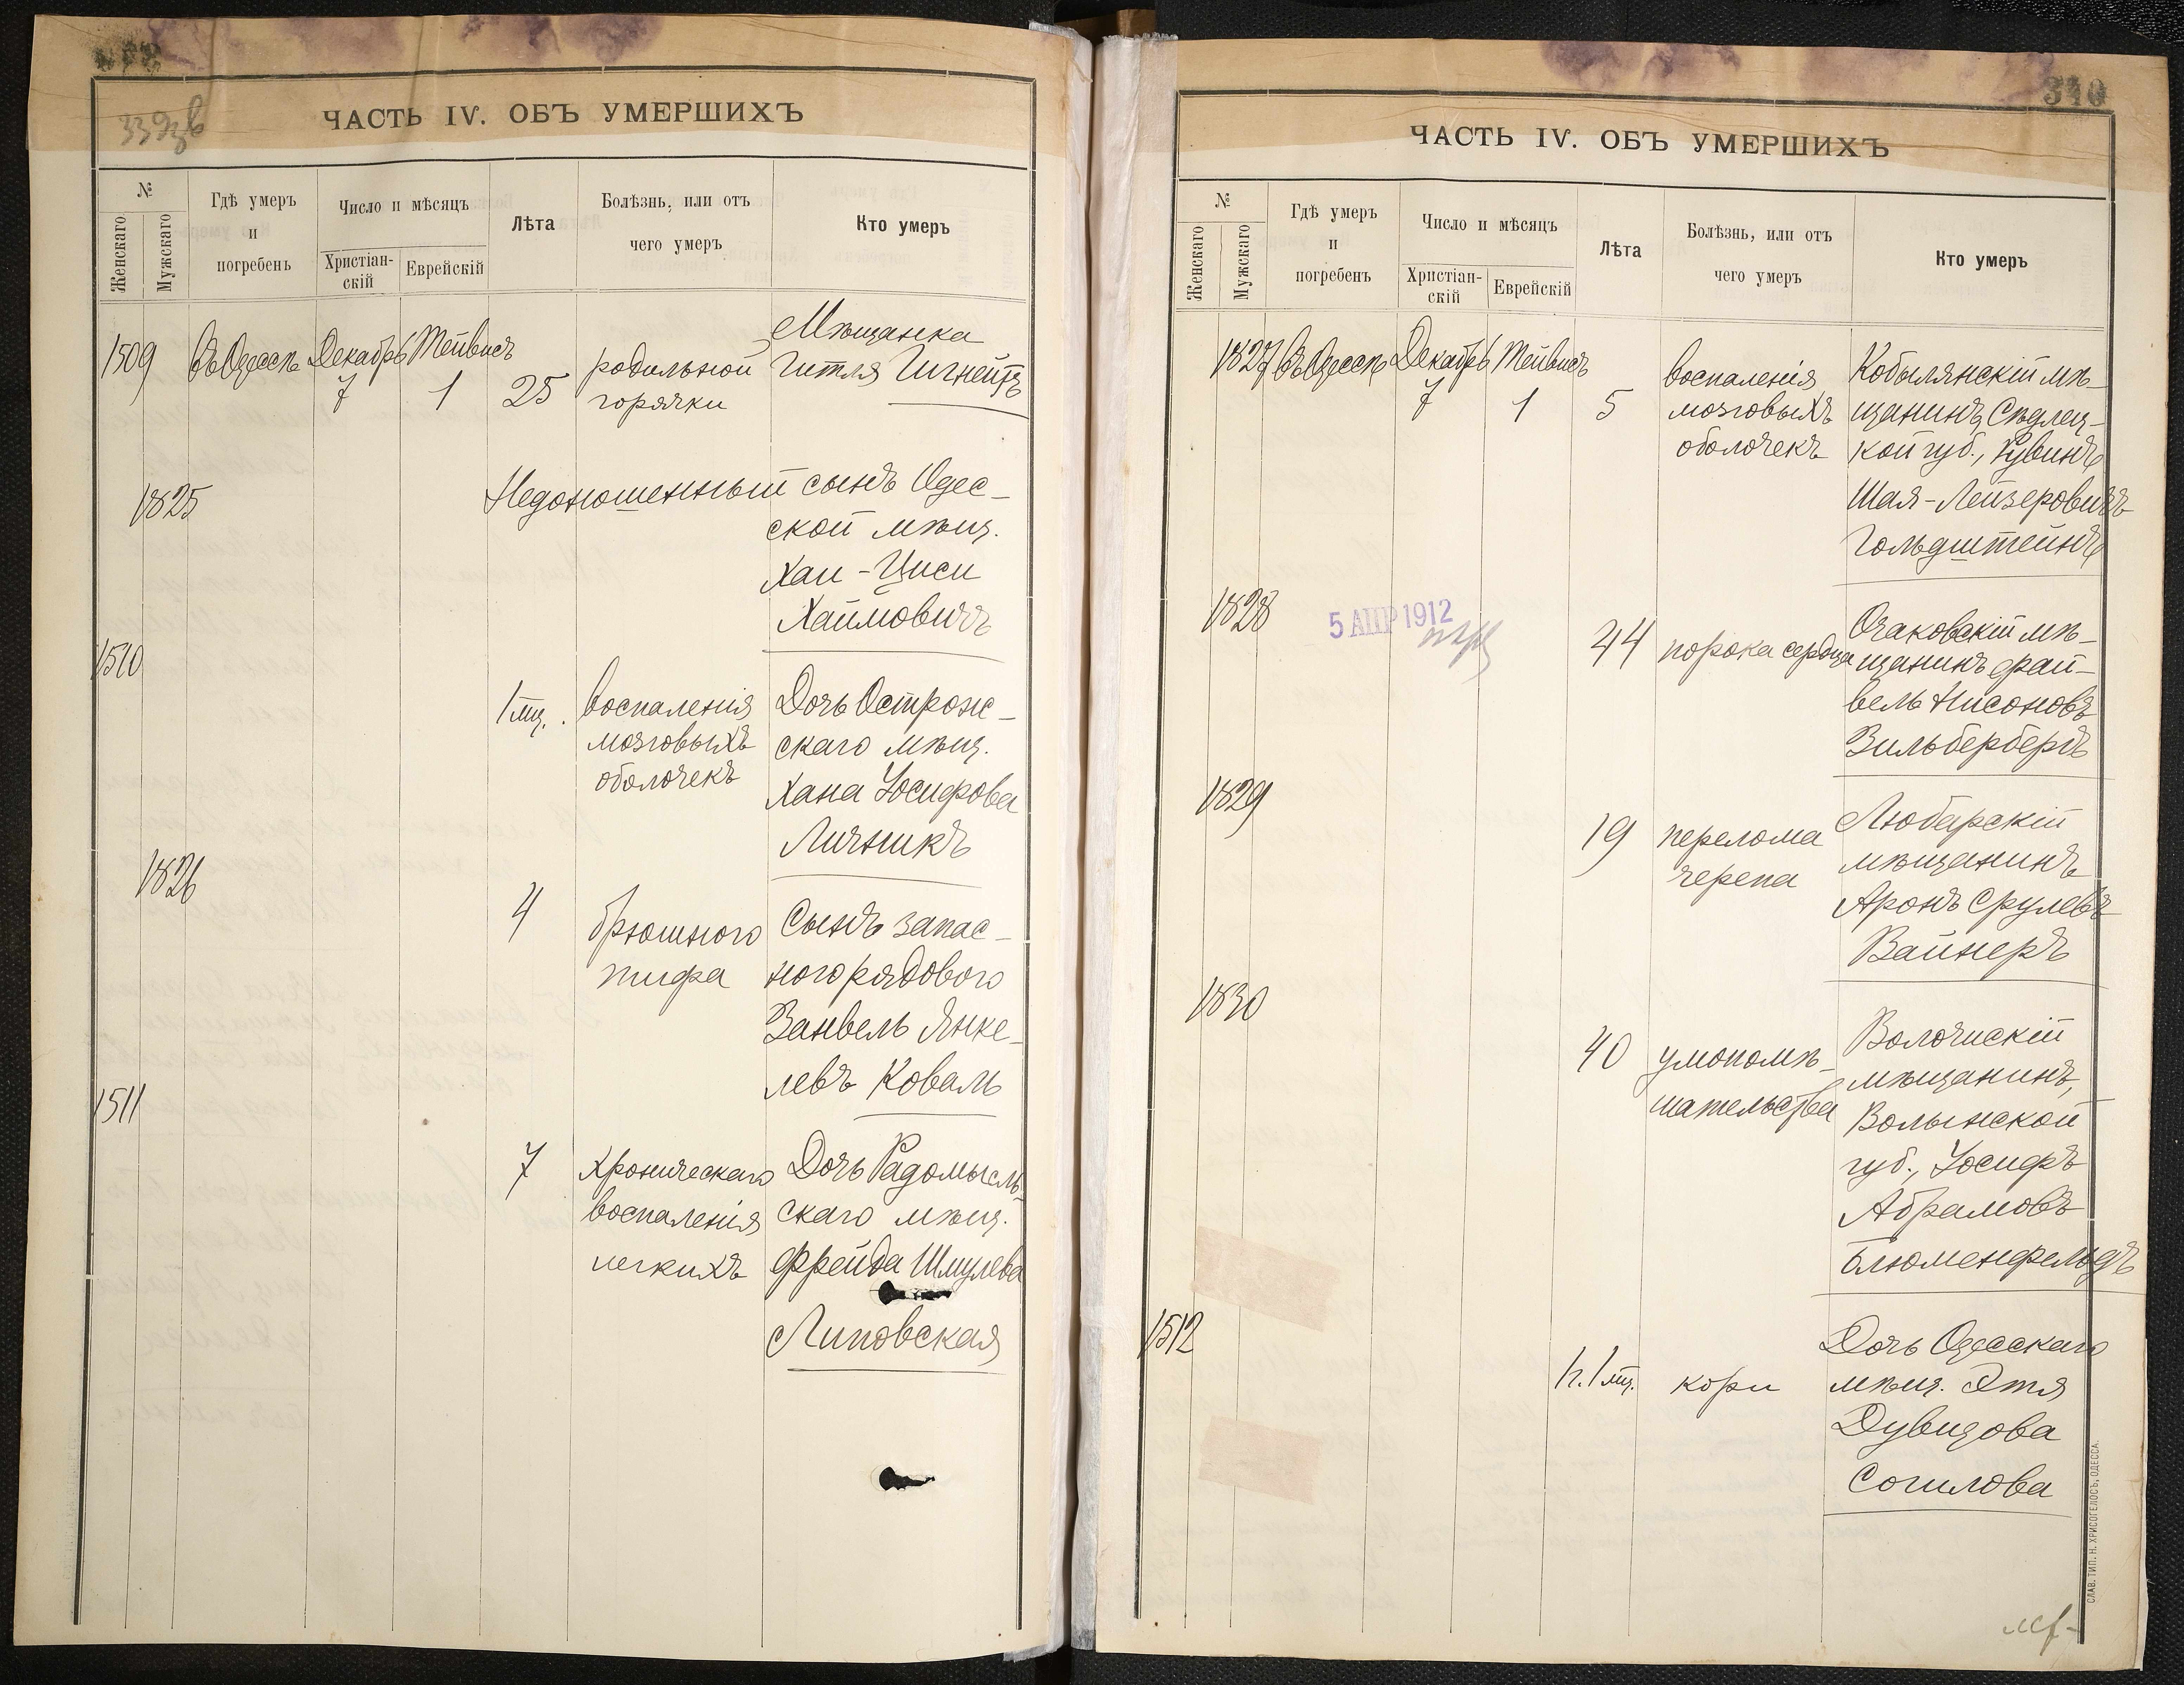 339зв
ЧАСТЬ IV. ОБЪ УМЕРШИХЪ
№
Женскаго
Мужскаго
Гдѣ умеръ
и
погребенъ
Число и мѣсяцъ
Христіан-
скій
Еврейскій
Лѣта
Болѣзнь, или отъ
чего умеръ
Кто умеръ
1509
въ Одессѣ
Декабрь
7
Тейвисъ
1
25
родильной
горячки
Мѣщанка
Гитля
1825
Недоношенный сынъ Одес-
ской мѣщ.
Хаи-Циси
Хаймовичъ
1510
1 мц.
воспаленія
мозговыхъ
оболочекъ
Дочь Острож-
скаго мѣщ.
Хана Іосифова
Личникъ
1826
4
брюшного
тифа
Сынъ запас-
ного рядового
Занвель Янке-
левъ Коваль
1511
7
хроническаго
воспаленія
легкихъ
Дочь Радомысль-
скаго мѣщ.
Фрейда Шмулева
Липовская
340
ЧАСТЬ IV. ОБЪ УМЕРШИХЪ
№
Женскаго
Мужскаго
Гдѣ умеръ
и
погребенъ
Число и мѣсяцъ
Христіан-
скій
Еврейскій
Лѣта
Болѣзнь, или отъ
чего умеръ
Кто умеръ
1827
въ Одессѣ
Декабрь
7
Тейвисъ
1
5
воспаленія
мозговыхъ
оболочекъ
Кобылянскій мѣ-
щанинъ, Сѣдлец-
кой губ., Рувинъ
Шая-Лейзеровичъ
Гольдштейнъ
1828
5 АПР 1912
44
порока сердца
Очаковскій мѣ-
щанинъ Фай-
вель Нисоновъ
Зильбербергъ
1829
19
перелома
черепа
Любарскій
мѣщанинъ
Аронъ Срулевъ
Вайнеръ
1830
40
умопомѣ-
шательства
Волочискій
мѣщанинъ,
Волынской
губ., Іосифъ
Абрамовъ
Блюменфельдъ
1512
1 г. 1 мц.
кори
Дочь Одесскаго
мѣщ. Этя
Дувидова
Согилова
СЛАВ. ТИП. Н. ХРИСОГЕЛОСЪ, ОДЕССА.